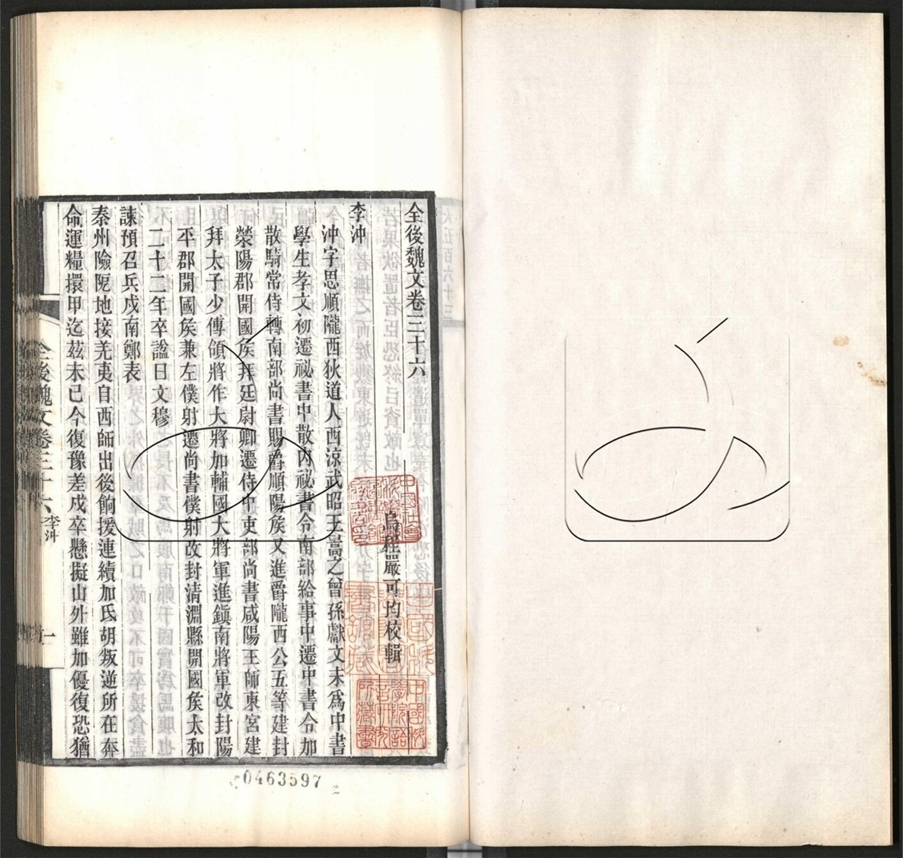 全後魏文卷三十六
烏程嚴可均校輯
李沖
沖字思順隴西狄道人西涼武昭王暠之曾孫獻文末爲中書
學生孝文初遷祕書中散內祕書令南部給事中遷中書令加
散騎常侍轉南部尚書賜爵順陽矦又進爵隴西公五等建封
滎陽郡開國矦拜廷尉卿遷侍中吏部尚書咸陽王師東宮建
拜太子少傅領將作大將加輔國大將軍進鎭南將軍改封陽
平郡開國矦兼左僕射遷尚書僕射改封清淵縣開國矦太和
二十二年卒諡曰文穆
諫預召兵戍南鄭表
秦州險阨地接羌夷自西師出後餉援連續加氐胡叛逆所在奔
命運糧擐甲迄茲未已今復豫差戍卒懸擬山外雖加優復恐猶
全後魏文卷三十六 李沖
一
0463597